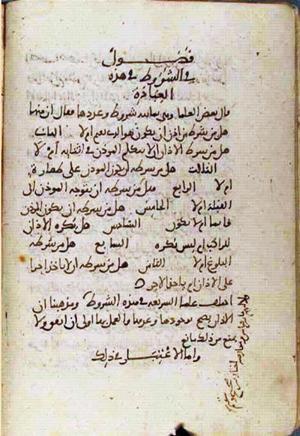 فصول
في الشروط في هذه
العبادة
قال بعض العلماء وهي ثمانية شروط وعددها فقال ان منها
هل من شرط من اذن ان يكون هو المقيم ام لا الثاني
هل من شرط الاذان ان لا يتكلم المؤذن في اثنائه ام لا
الثالث هل من شرطه ان يكون المؤذن على طهارة
ام لا الرابع هل من شرطه ان يتوجه المؤذن الى
القبلة ام لا الخامس هل من شرطه ان يكون المؤذن
قائما ام لا يكون السادس هل يكره الاذان
للراكب ام ليس يكره السابع هل من شرطه
البلوغ ام لا الثامن هل من شرطه ان لا ياخذ اجرا
على الاذان ام ياخذ الاجر
اختلف علماء الشريعة في هذه الشروط ومذهبنا ان
الاذان يصح بوجودها وعدمها والعمل بها اولى ان اتفق ولا
يمنع من ذلك مانع
واما الا في ذلك